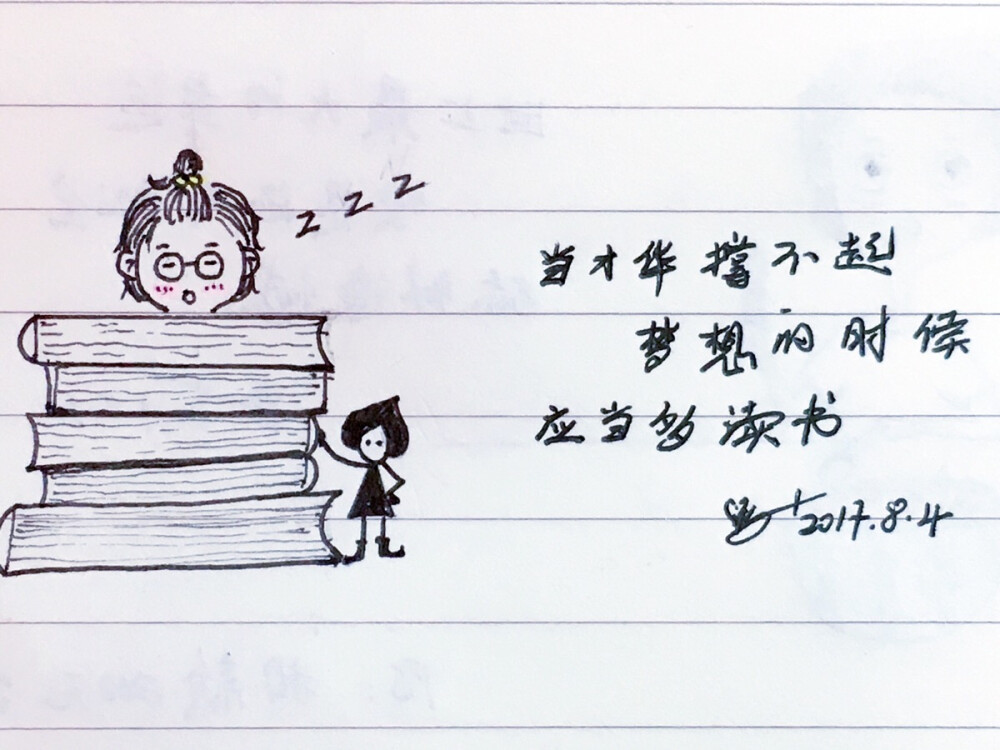 z z z
当才华撑不起
梦想的时候
应当多读书
2017.8.4